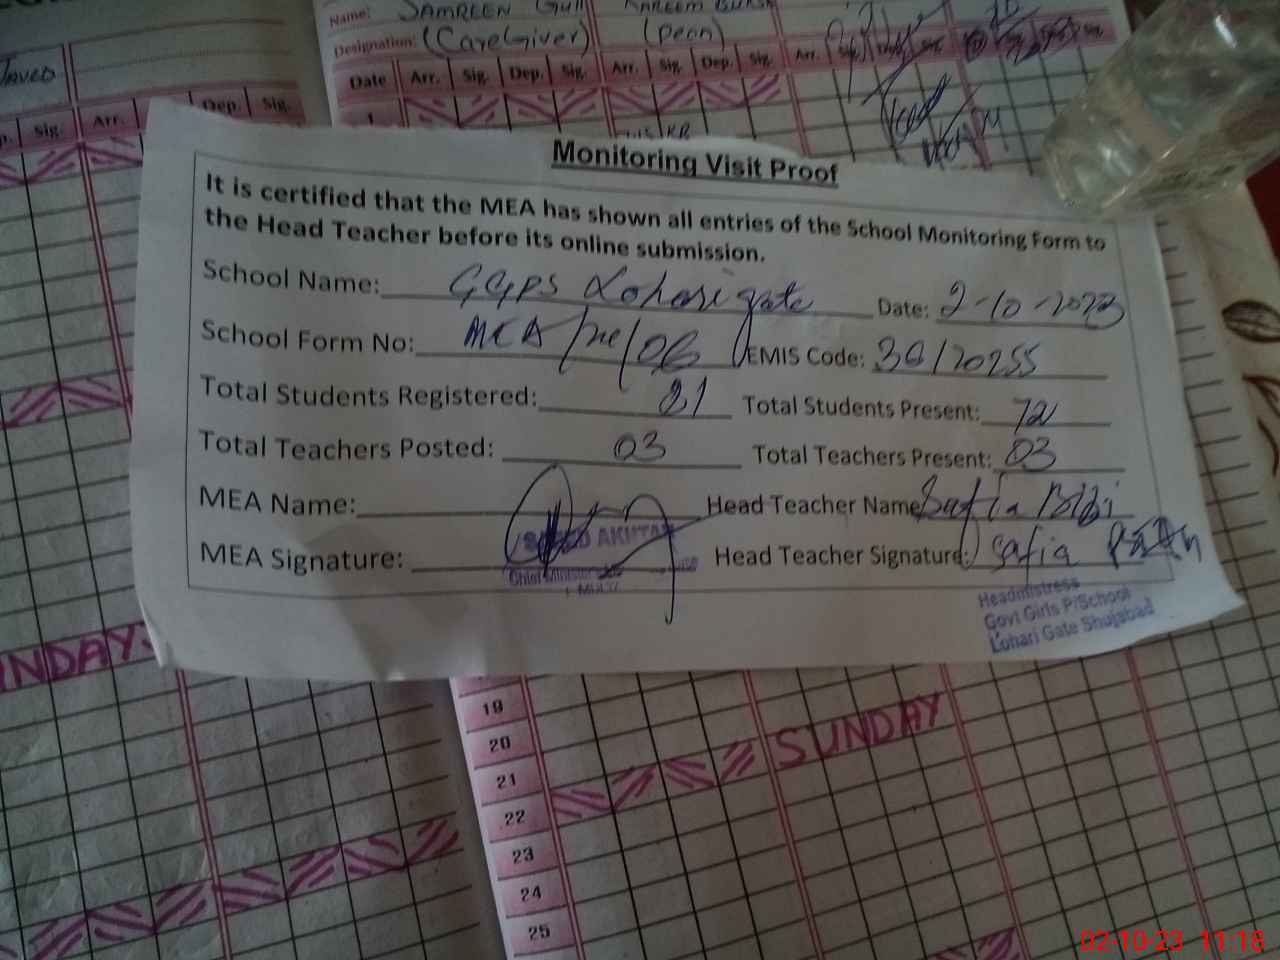 Javed
Sig. Arr. Dep. Sig.
Name: SAMREEN Gull KAREEM
Designation: (CareGiver) (peon)
Date Arr. Sig. Dep. Sig. Arr. Sig. Dep. Sig. Arr.
1
Monitoring Visit Proof
It is certified that the MEA has shown all entries of the School Monitoring Form to
the Head Teacher before its online submission.
School Name: GGPS Lohari gate Date: 2-10-2023
School Form No: MEA/ne/06 EMIS Code:
Total Students Registered: 81 Total Students Present: 72
Total Teachers Posted: 03 Total Teachers Present: 03
MEA Name: Head Teacher Name: Safia Bibi
MEA Signature: Head Teacher Signature: Safia
AKHTAR
Chief Minister
Headmistress
Govt Girls P/School
Lohari Gate Shujabad
SUNDAY
19
20
21
22
23
24
25
SUNDAY
02-10-23 11:18